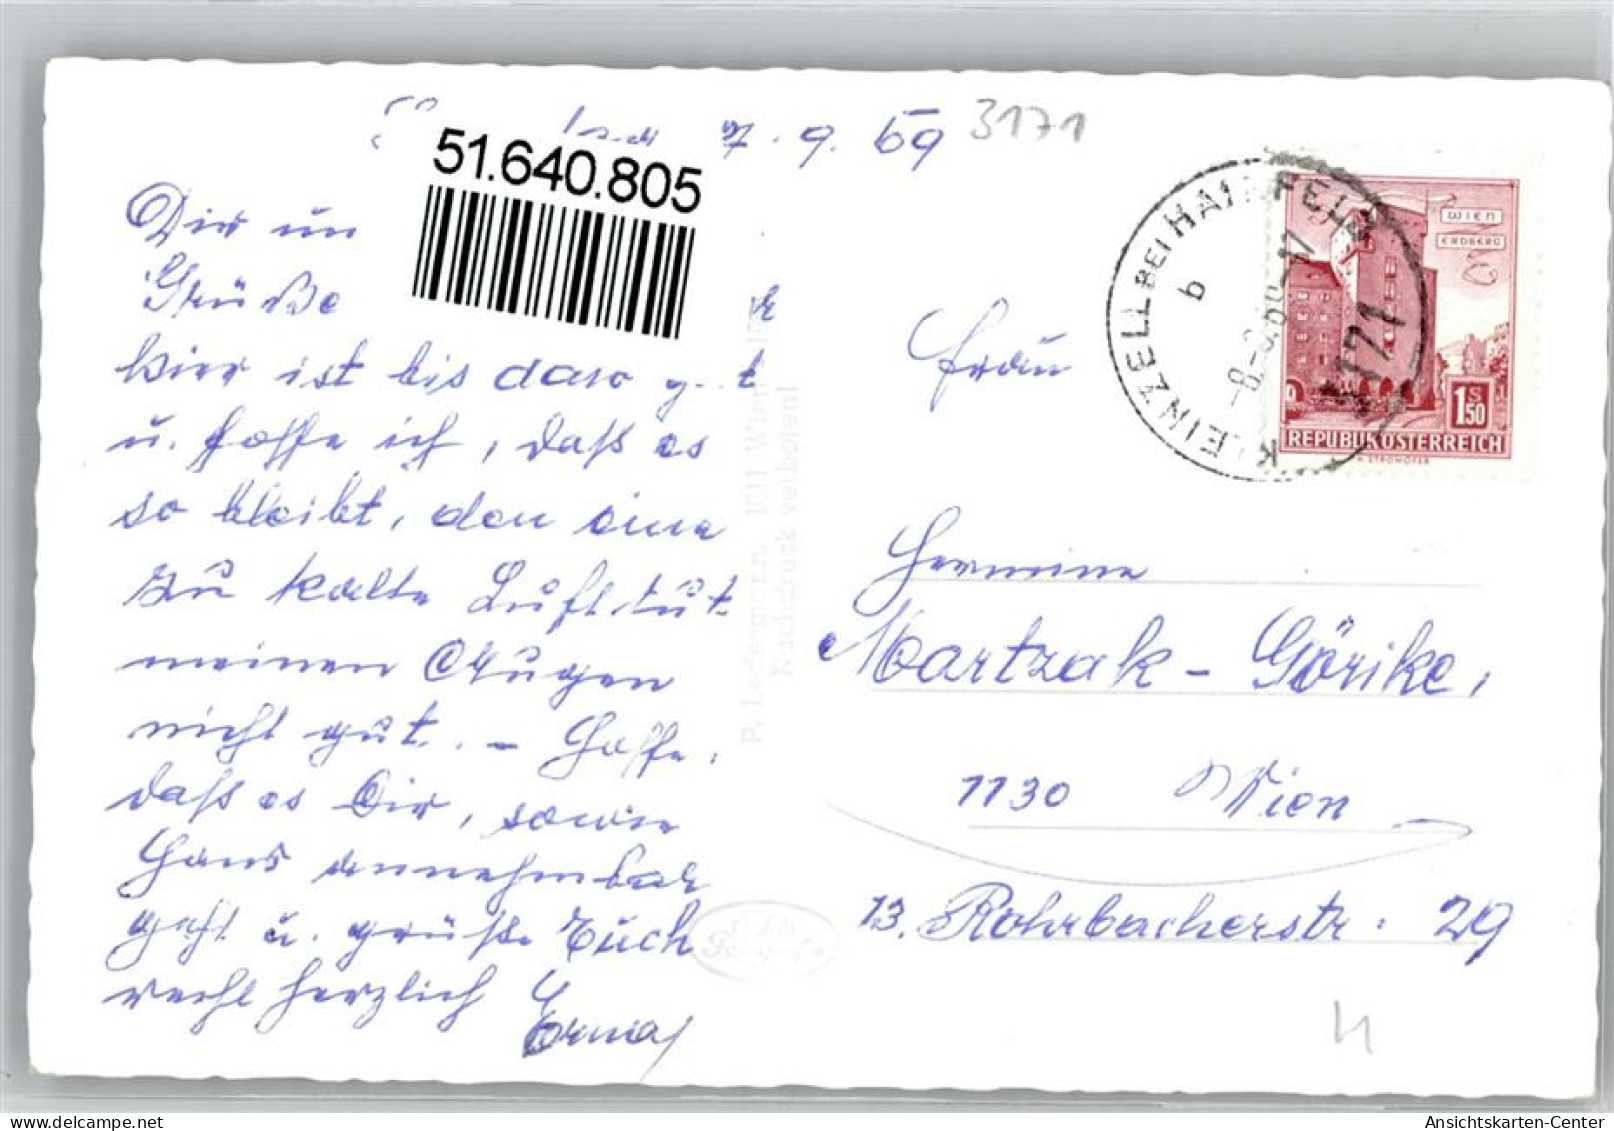 7. 9. 69
3171
51.640.805
Dir un
Grüße
hier ist bis dato g t
u. hoffe ich, daß es
so bleibt, den eine
zu kalte Luft tut
meinen Augen
nicht gut. - Hoffe,
daß es Dir, sowie
Hans annehmbar
geht u. grüße Euch
recht herzlich
Erna
P. Ledermann, Wien
Nachdruck verboten!
KLEINZELL BEI HAINFELD
b
3171
WIEN
ERDBERG
1 S 50
REPUBLIK ÖSTERREICH
Frau
Hermine
Martzak - Görike,
1130 Wien
13. Rohrbacherstr. 29
Ansichtskarten-Center